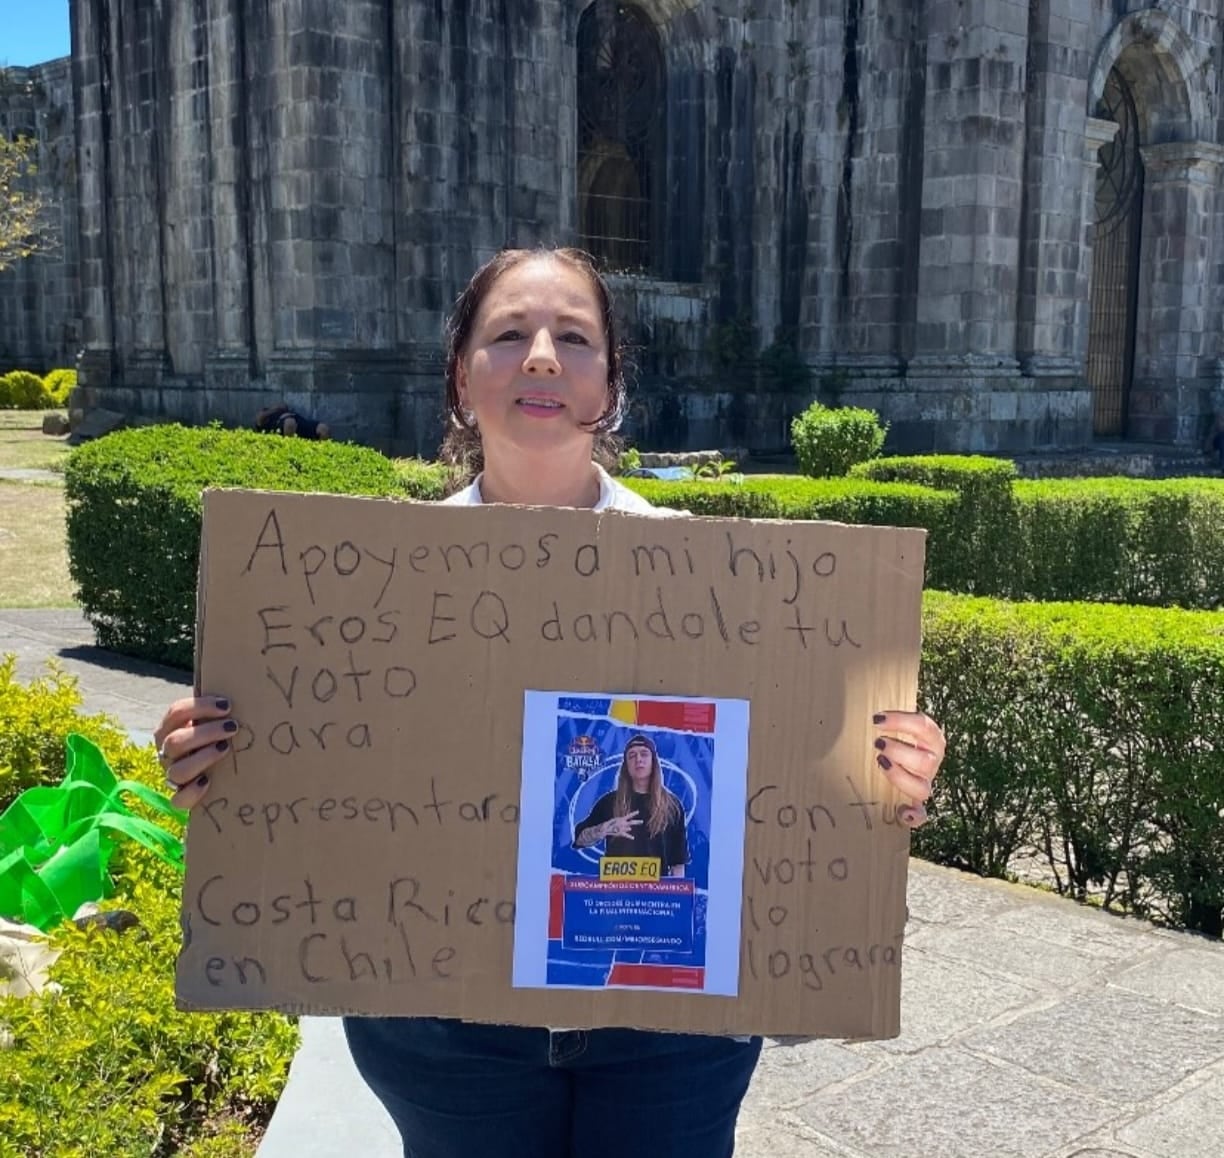 Apoyemos a mi hijo
Eros EQ dandole tu
voto
para
representara
Costa Rica
en Chile
Con tu
voto
lo
lograra
Red Bull
BATALLA
EROS EQ
SUBCAMPEÓN DE CENTROAMÉRICA
TÚ DECIDES QUIÉN ENTRA EN
LA FINAL INTERNACIONAL
REDBULL.COM/MEJORSEGUNDO